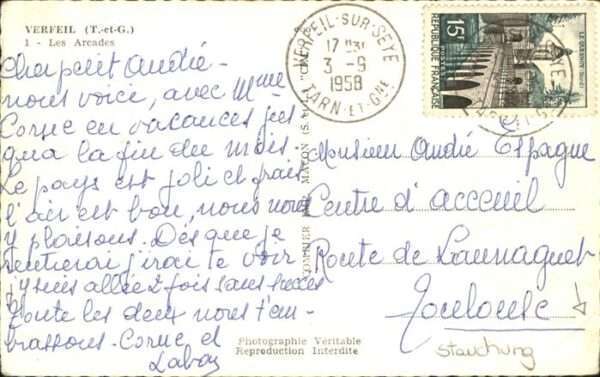 VERFEIL (T.-et-G.)
1 - Les Arcades
Cher petit André -
nous voici, avec Mme
Corne en vacances jus
qua la fin du mois.
Le pays est joli et frais
l'air est bon, nous nous
y plaisons. Dès que je
rentrerai j'irai te voir
j'y suis allée 2 fois sans succès
Toute les deux nous t'em-
brassons. Corne et
VERFEIL-SUR-SEYE
17H
3 - 9
1958
TARN-ET-GNE
15F
REPUBLIQUE FRANÇAISE
POSTES
LE QUESNOY
COMBIER MACON
Monsieur André Espagne
Centre d'acceuil
Route de Launaguet
Toulouse
Photographie Véritable
Reproduction Interdite
Stauchung